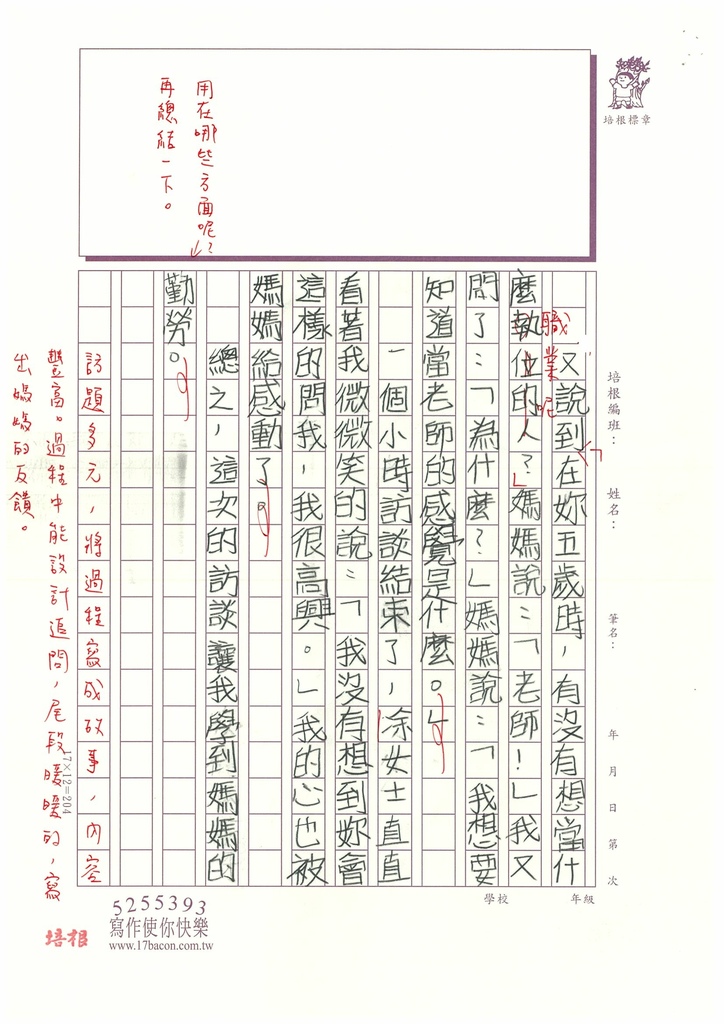 用在哪些方面呢？
再總結一下。
培根標章
培根編班： 姓名： 筆名： 年 月 日 第 次
又說到在妳五歲時，有沒有想當什
麼執位的人？」媽媽說：「老師！」我又
職業呢
問了：「為什麼？」媽媽說：「我想要
知道當老師的感覺是什麼。」
一個小時訪談結束了，涂女士直直
看著我微微笑的說：「我沒有想到妳會
這樣的問我，我很高興。」我的心也被
媽媽給感動了。
總之，這次的訪談讓我學到媽媽的
勤勞。
訪題多元，將過程寫成故事，內容
豐富。過程中能設計追問，尾段暖暖的，寫
出媽媽的反饋。
17×12=204
學校 年級
5255393
寫作使你快樂
www.17bacon.com.tw
培根